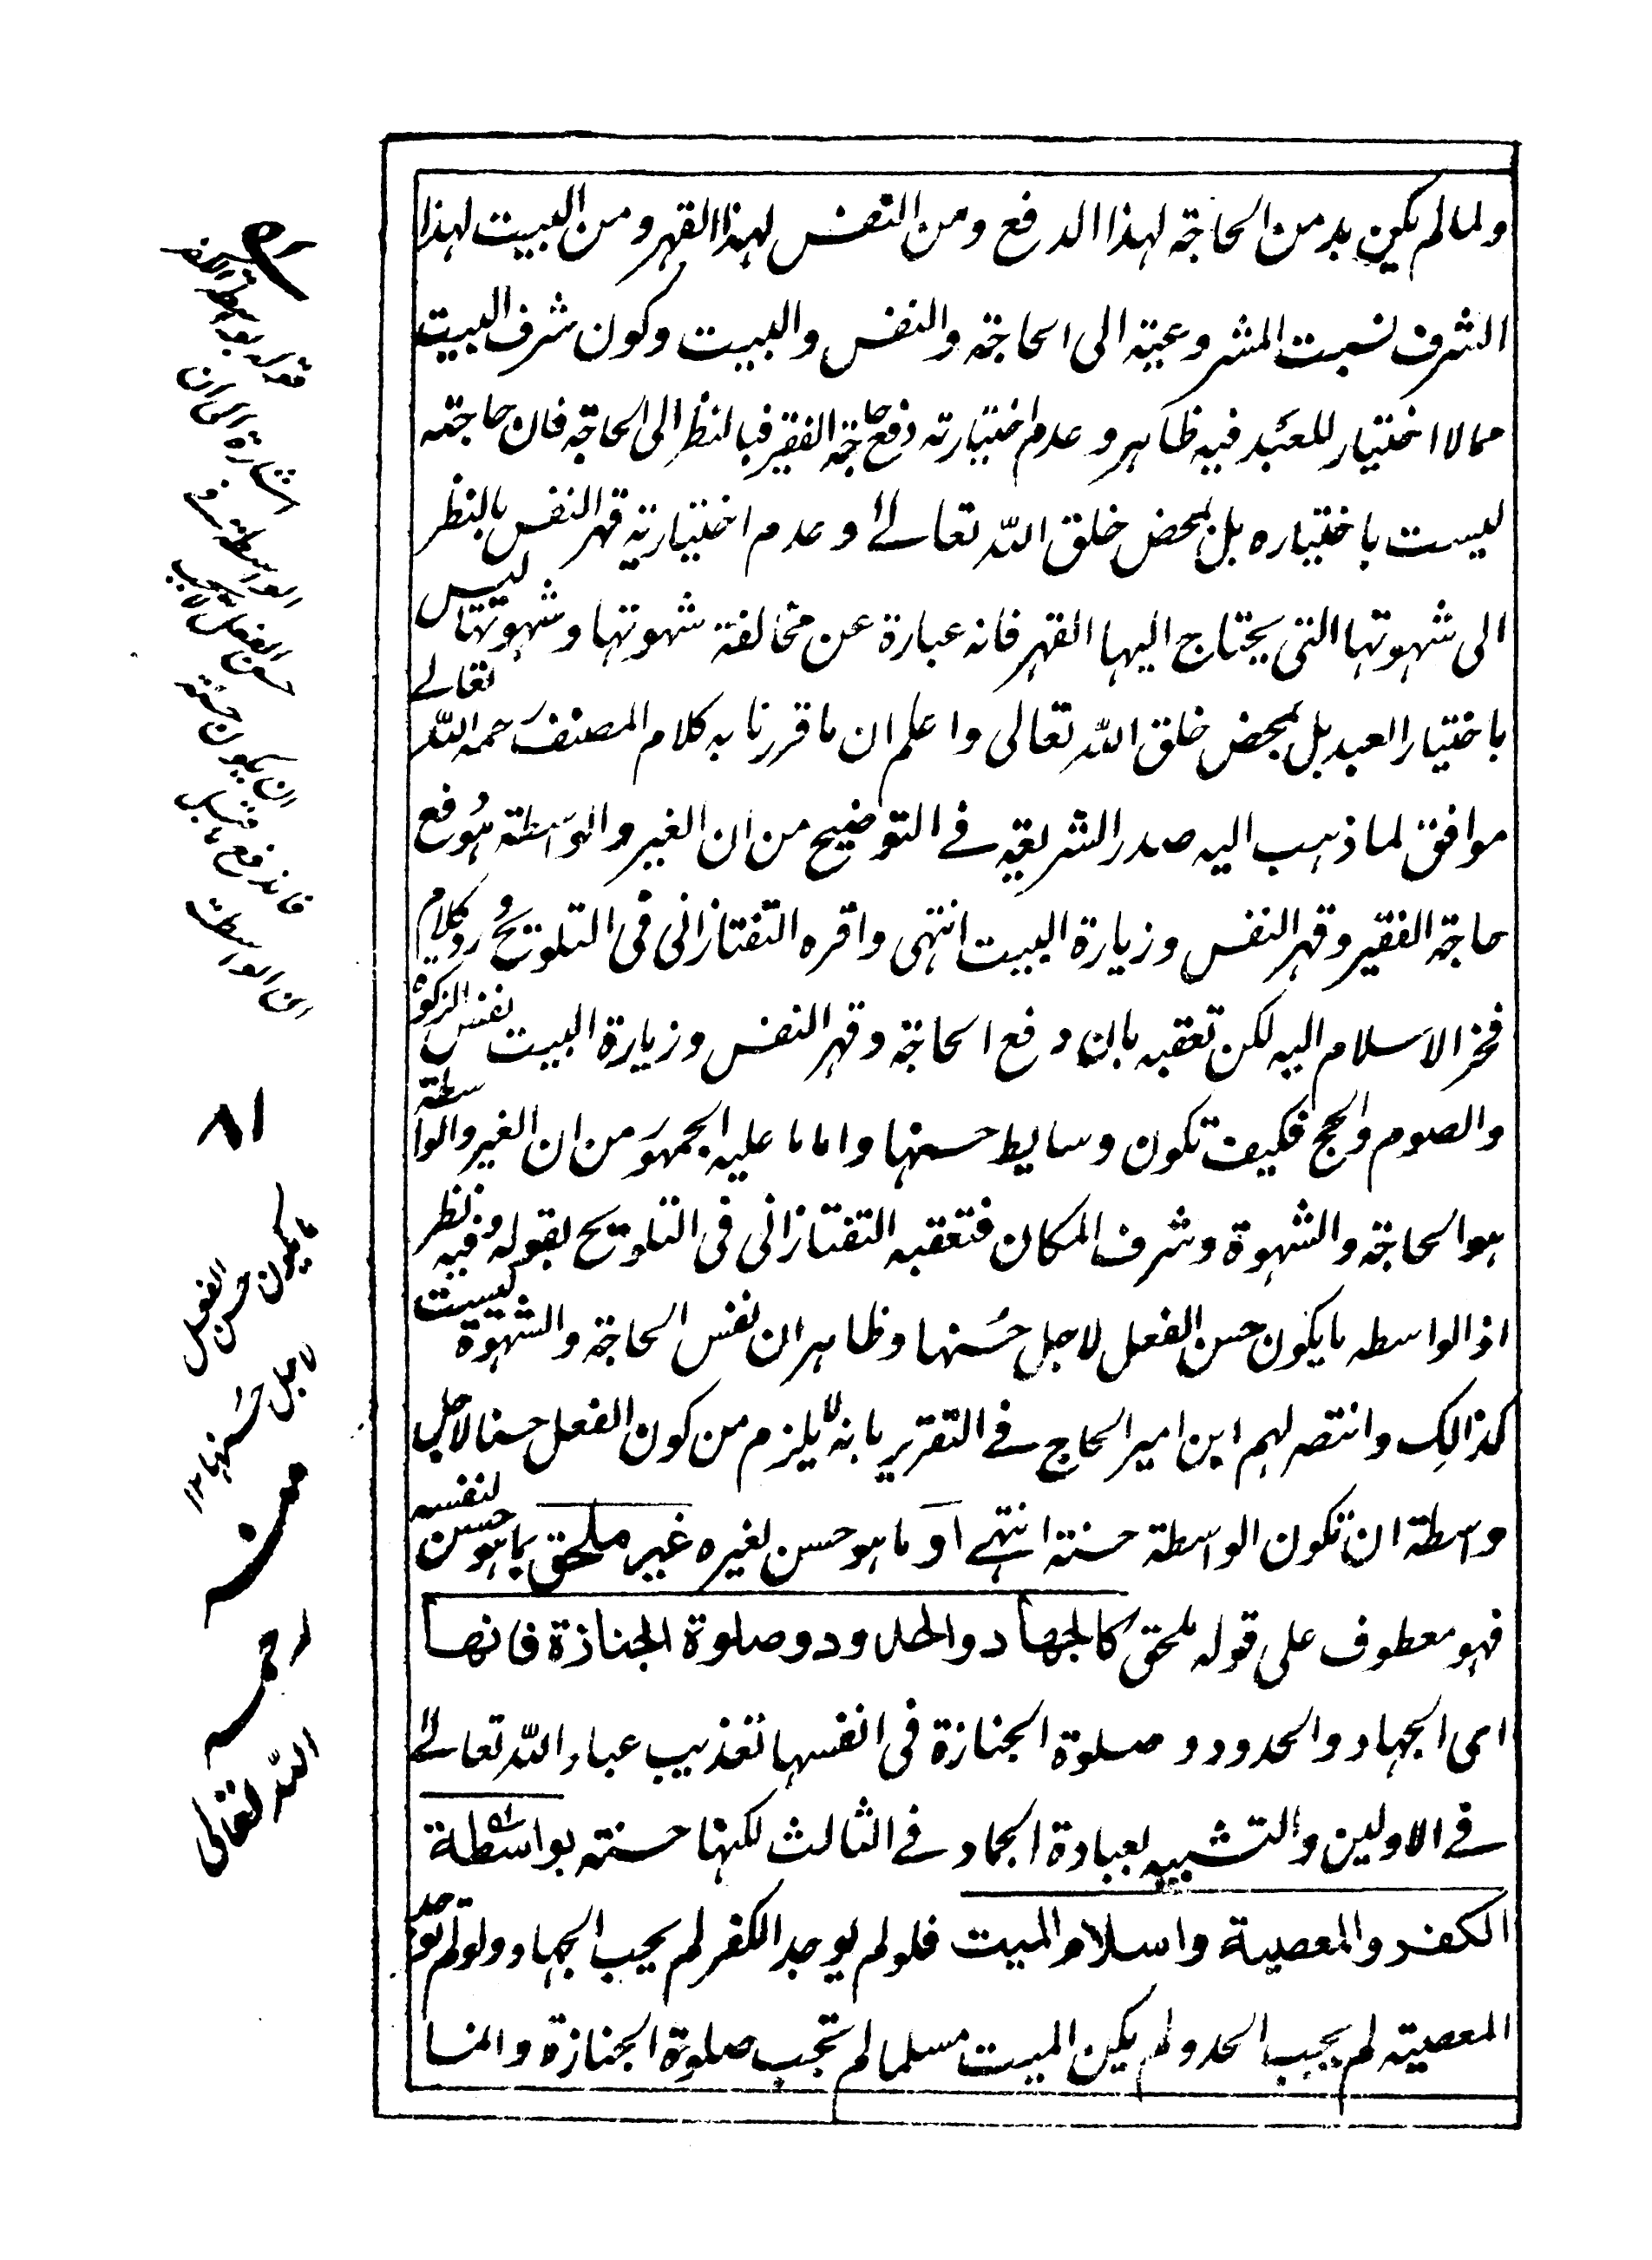 ولما لم يكن بد من الحاجة لهذا الدفع ومن النفس لهذا القهر ومن البيت لهذا
الشرف نسبت المشروعية الى الحاجة والنفس والبيت وكون شرف البيت
مما لا اختيار للعبد فيه ظاهر وعدم اختيارته دفع حاجة الفقير فبالنظر الى الحاجة فان حاجته
ليست باختياره بل بمحض خلق الله تعالى وعدم اختيارية قهر النفس بالنظر
الى شهوتها التى يحتاج اليها القهر فانه عبارة عن مخالفة شهوتها وشهوتها ليس
باختيار العبد بل بمحض خلق الله تعالى واعلم ان ما قررنا به كلام المصنف رحمه الله تعالى
موافق لما ذهب اليه صدر الشريعة في التوضيح من ان الغير والواسطة هو دفع
حاجة الفقير وقهر النفس وزيارة البيت انتهى واقره التفتازانى فى التلويح ورد كلام
فخر الاسلام اليه لكن تعقبه بان دفع الحاجة وقهر النفس وزيارة البيت نفس الزكوة
والصوم والحج فكيف تكون وسايط حسنها واما ما عليه الجمهور من ان الغير والواسطة
هو الحاجة والشهوة وشرف المكان فتعقبه التفتازانى فى التلويح بقوله وفيه نظر
اذ الواسطه ما يكون حسن الفعل لاجل حسنها وظاهر ان نفس الحاجة والشهوة ليست
كذالك وانتصر لهم ابن امير الحاج في التقرير بانه لا يلزم من كون الفعل حسنا لاجل
واسطة ان تكون الواسطة حسنة انتهى او ما هو حسن لغيره غير ملحق بما هو حسن لنفسه
فهو معطوف على قوله ملحق كالجهاد والحدود وصلوة الجنازة فانها
اى الجهاد والحدود وصلوة الجنازة فى انفسها تعذيب عباد الله تعالى
في الاولين والتشبيه بعبادة الجماد في الثالث لكنها حسنته بواسطة
الكفر والمعصية واسلام الميت فلو لم يوجد الكفر لم يجب الجهاد ولو لم توجد
المعصية لم يجب الحد ولو لم يكن الميت مسلما لم تجب صلوة الجنازة والمنا
قوله بواسطة الكفر
اشارة الى ان
الواسطة
حسن الفعل
ان يكون حسنة
فاندفع
ان الواسطة
ما يكون حسن الفعل
لاجل حسنها ١٢
منه
رحمه
الله تعالى